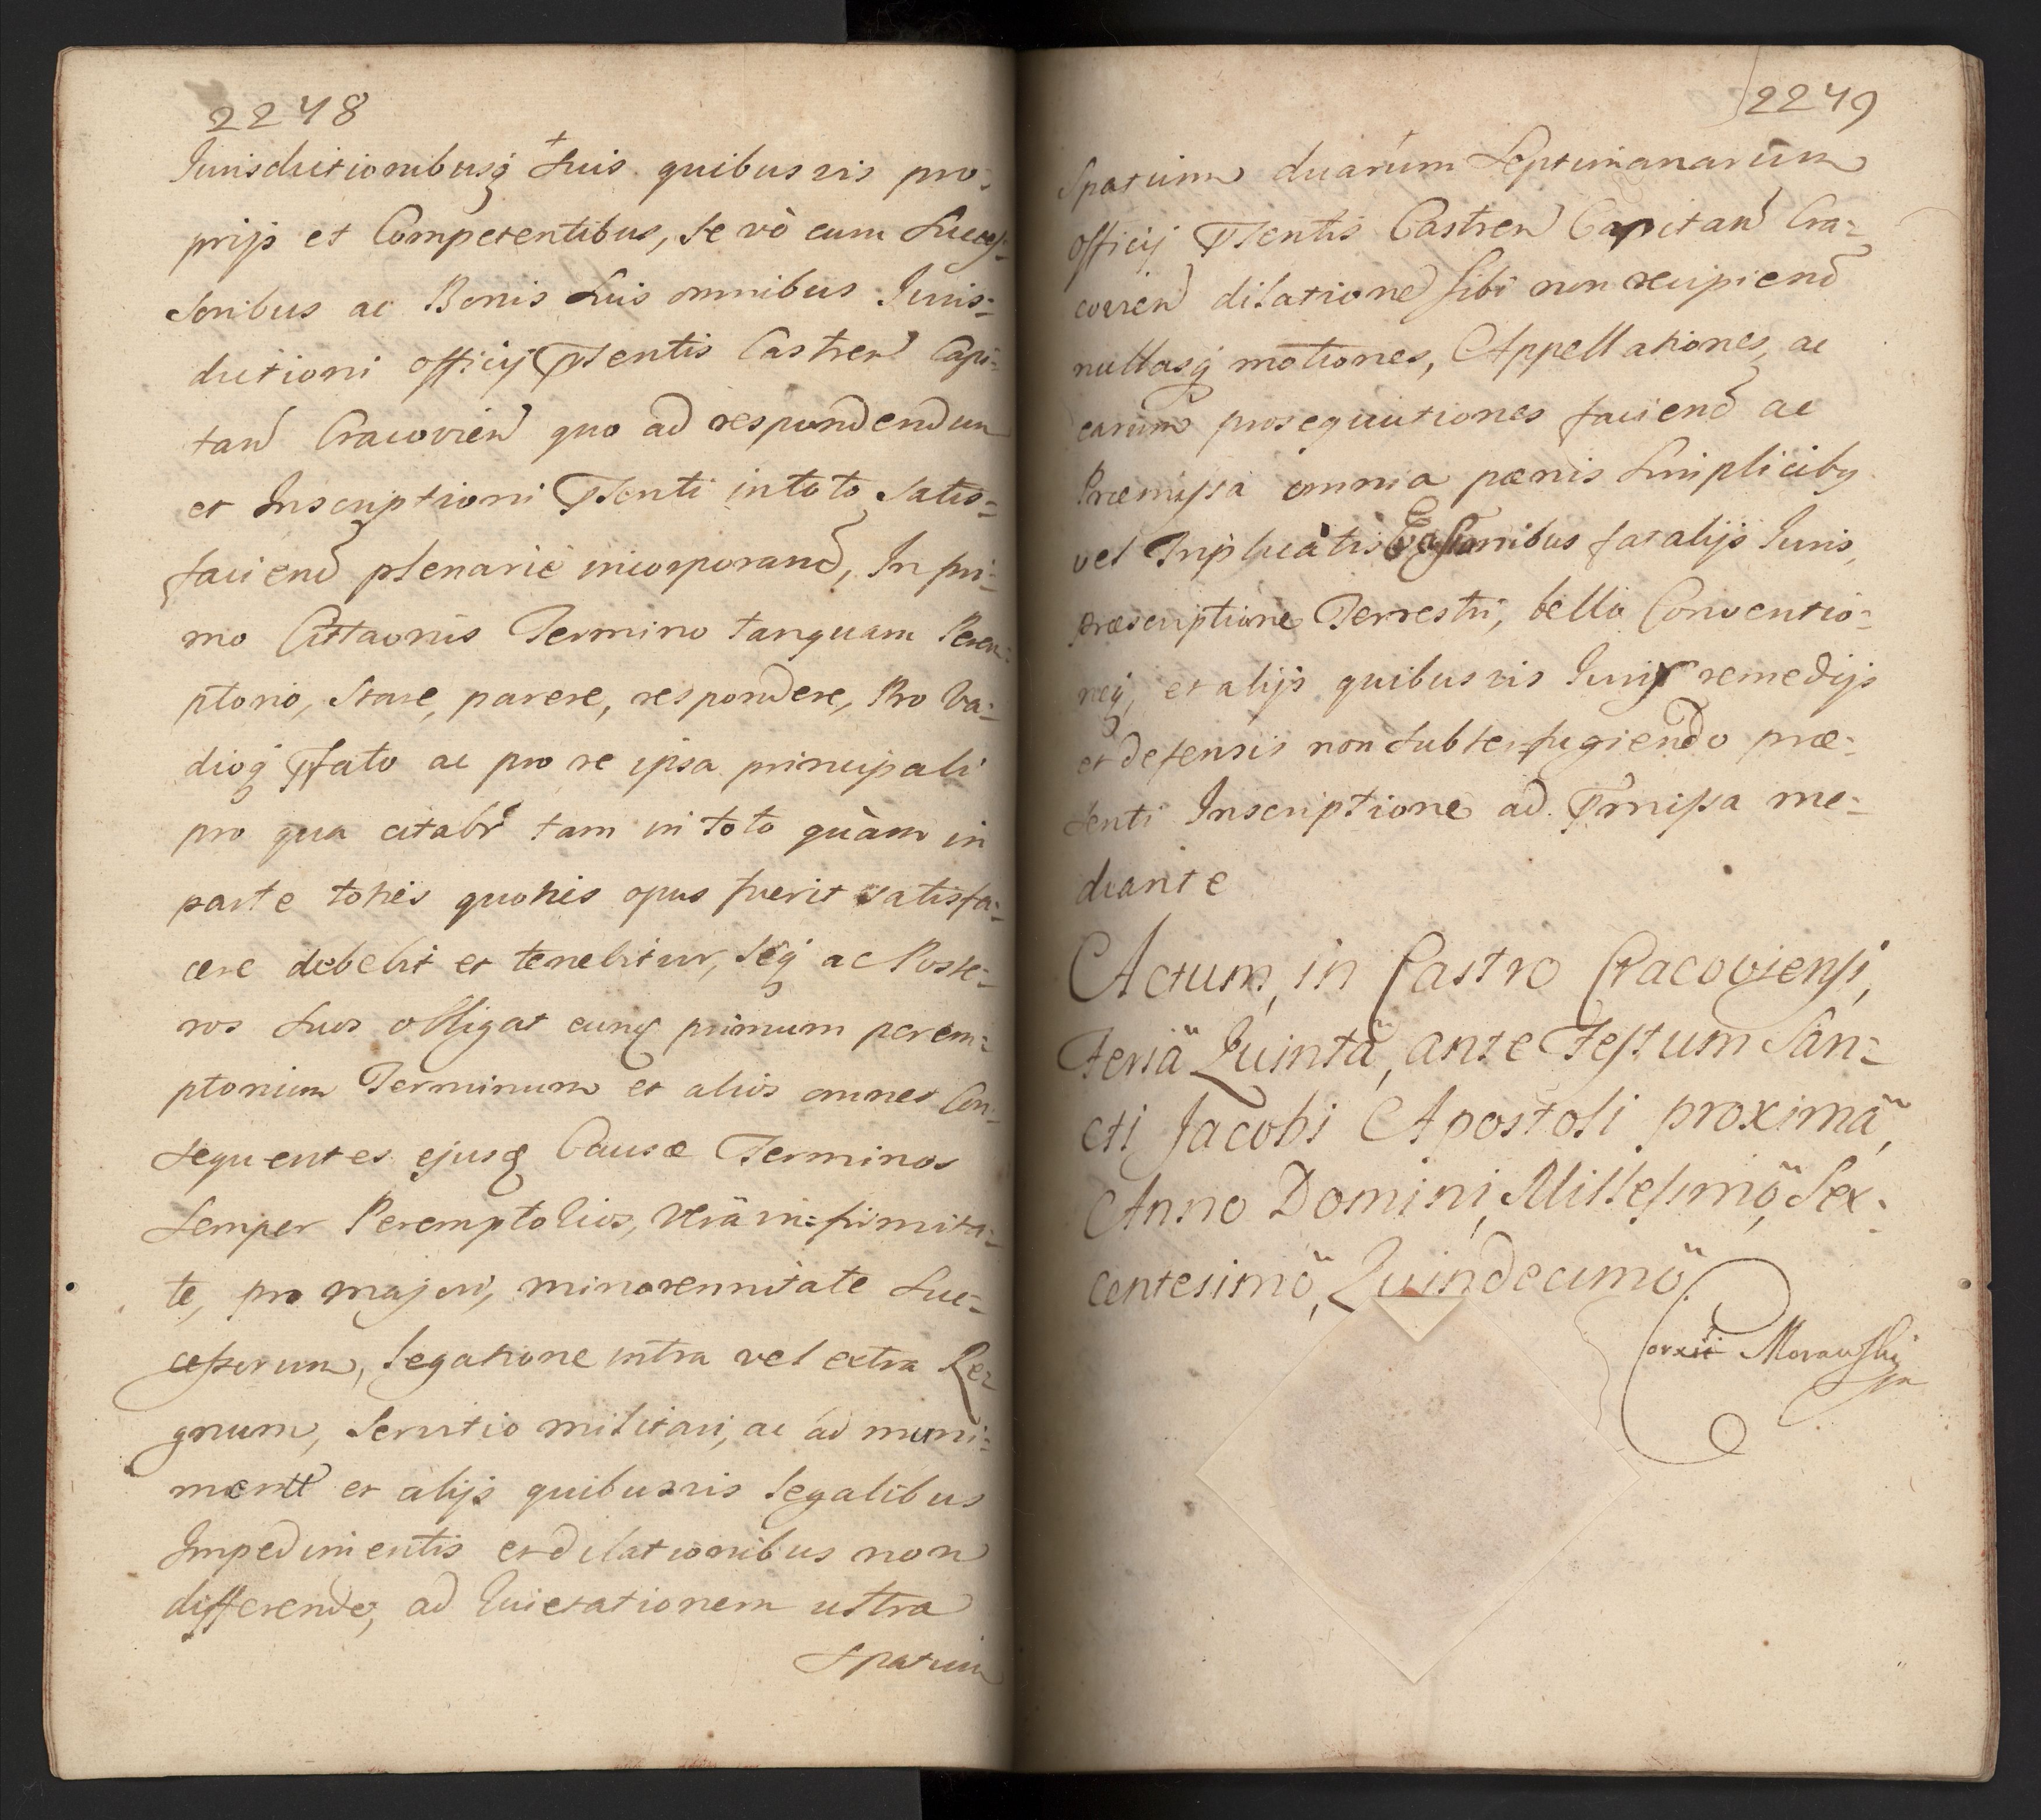 2248
Jurisdictionibusq suis quibusvis pro-
prijs et Competentibus, Se vò cum Succes-
soribus ac Bonis Suis omnibus Juris-
dictioni officij Pñsentis Castren Capi-
tan Cracovien quo ad respondendum
et Inscriptioni Pñsenti in toto Satis-
faciend plenarie incorporand, In pri-
mo Citaonis Termino tanquam Perem-
ptorio, Stare, parere, respondere, Pro Va-
dioq Pfato ac pro re ipsa principali
pro qua citabr tam in toto quàm in
parte toties quoties opus fuerit satisfa-
cere debebit et tenebitur, Seq ac Poste-
ros Suos obligat eunq primum perem-
ptorium Terminum et alios omnes Con-
sequentes ejusq Causæ Terminos
Semper Peremptorios, Verä in-firmita-
te, pro majori, minorennitate Suc-
cessorum, legatione intra vel extra Re-
gnum, Servitio militari, ac ad muni-
mentt et alijs quibusvis legalibus
Impedimentis et dilationibus non
differendo, ad Quietationem ultra
Spatium
2249
Spatium duarum Septimanarum
officij Pñsentis Castren Capitan Cra-
covien dilatione sibi non recipiend
nullasq motiones, Appellationes, ac
earum prosequutiones faciend ac
Præmissa omnia pænis Simplicibq
vel Triplicatis Evasionibus fatalijs Juris,
Præscriptione Terrestri, bello Conventio-
neq, et alijs quibusvis Juris remedijs
et defensis non Subterfugiendo præ-
senti Inscriptione ad Præmissa me-
diante
Actum, in Castro Cracoviensi,
Feriä Quintä, ante Festum San-
cti Jacobi Apostoli proximä,
Anno Domini, Millesimö, Sex-
centesimö, Quindecimö
Morawski